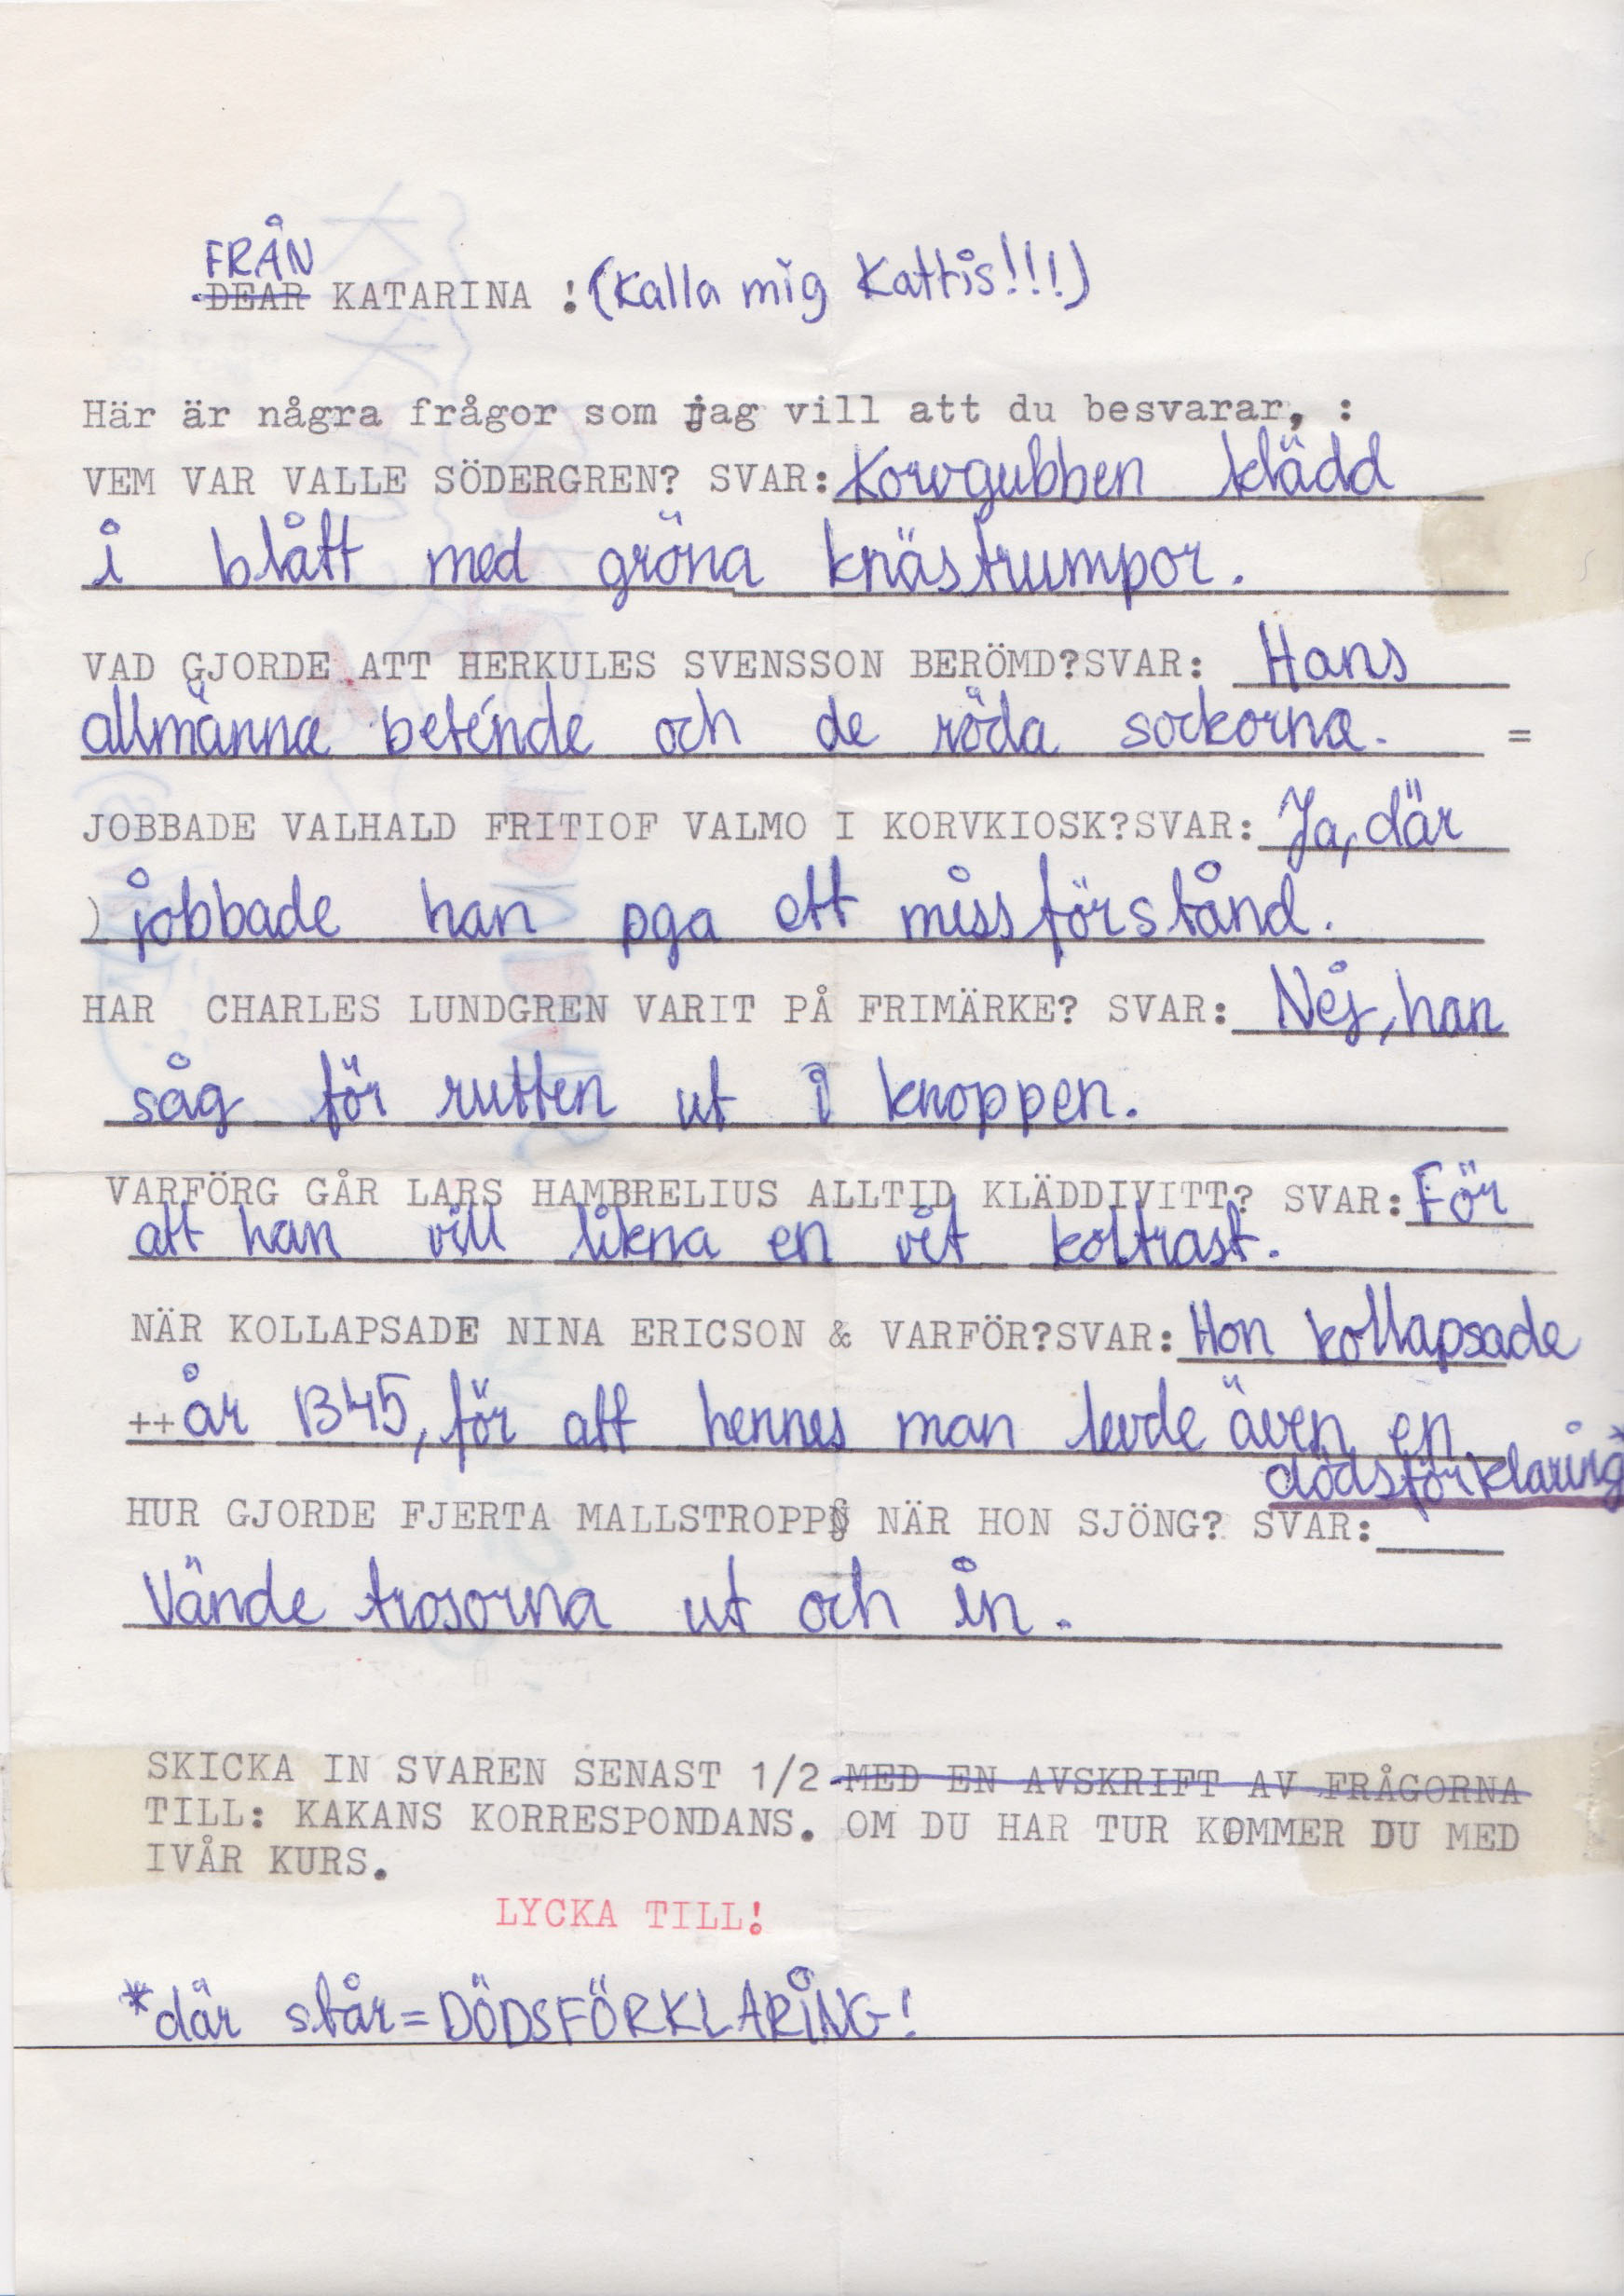 FRÅN
DEAR KATARINA : (Kalla mig Kattis!!!)
Här är några frågor som jag vill att du besvarar, :
VEM VAR VALLE SÖDERGREN? SVAR: Korvgubben klädd
i blått med gröna knästrumpor.
VAD GJORDE ATT HERKULES SVENSSON BERÖMD?SVAR: Hans
allmänna beténde och de röda sockorna. =
JOBBADE VALHALD FRITIOF VALMO I KORVKIOSK?SVAR: Ja, där
) jobbade han pga ett missförstånd.
HAR CHARLES LUNDGREN VARIT PÅ FRIMÄRKE? SVAR: Nej, han
såg för rutten ut i knoppen.
VARFÖRG GÅR LARS HAMBRELIUS ALLTID KLÄDDIVITT? SVAR: För
att han vill likna en vit koltrast.
NÄR KOLLAPSADE NINA ERICSON & VARFÖR?SVAR: Hon kollapsade
++ år 1345, för att hennes man levde även en
dödsförklaring*
HUR GJORDE FJERTA MALLSTROPP NÄR HON SJÖNG? SVAR:
Vände trosorna ut och in.
SKICKA IN SVAREN SENAST 1/2 MED EN AVSKRIFT AV FRÅGORNA
TILL: KAKANS KORRESPONDANS. OM DU HAR TUR KOMMER DU MED
IVÅR KURS.
LYCKA TILL!
*där står=DÖDSFÖRKLARING!